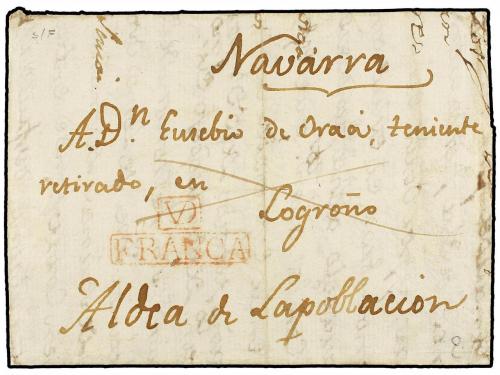 s/F
Navarra
A. Dn Eusebio de Oraá, teniente
retirado, en
Logroño
(V)
FRANCA
Aldea de Lapoblacion